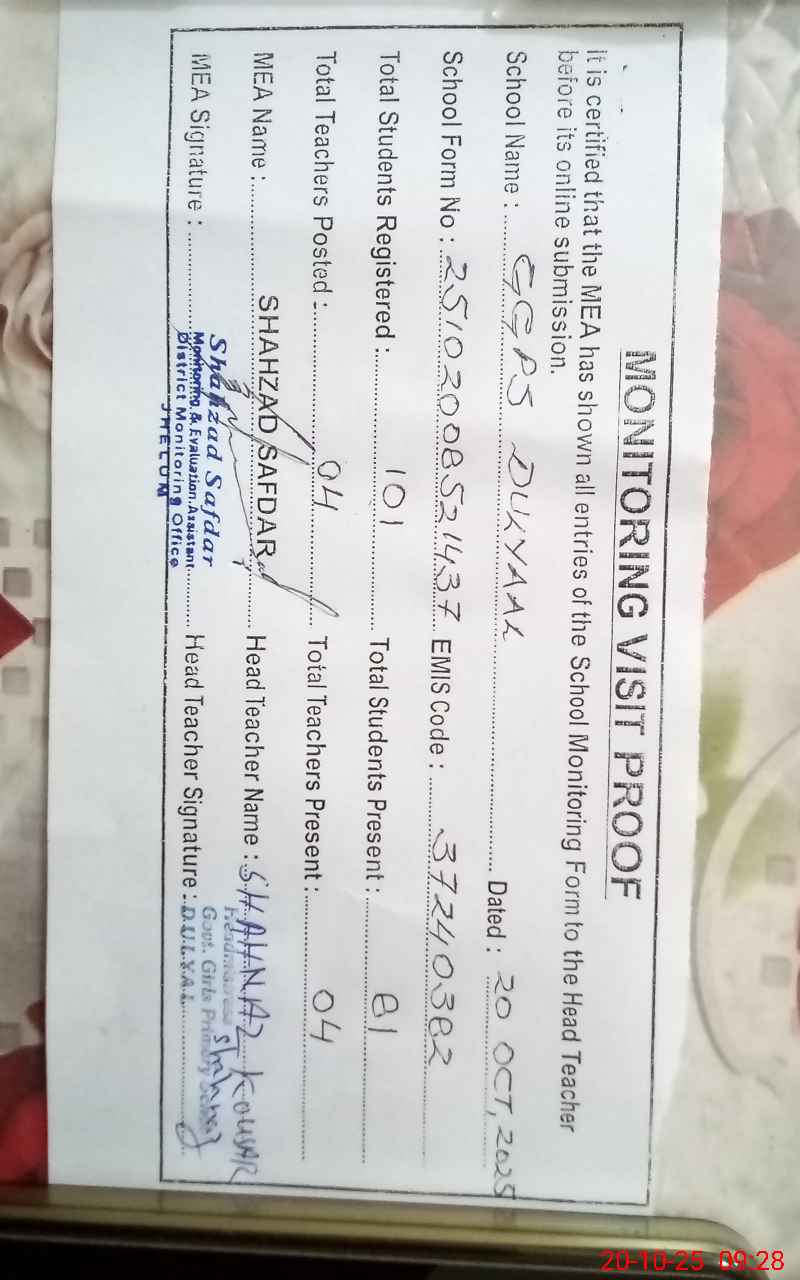 MONITORING VISIT PROOF
It is certified that the MEA has shown all entries of the School Monitoring Form to the Head Teacher
before its online submission.
School Name : GGPS DULYAAL Dated : 20 OCT, 2025
School Form No : 25102008521437 EMIS Code : 37240382
Total Students Registered : 101 Total Students Present : 81
Total Teachers Posted : 04 Total Teachers Present : 04
MEA Name : SHAHZAD SAFDAR Head Teacher Name : SHAHNAZ KOUSAR
MEA Signature : Head Teacher Signature : Shahnaz
Shahzad Safdar
Monitoring & Evaluation Assistant
District Monitoring Office
JHELUM
Headmistress
Govt. Girls Primary School
DULYAL
20-10-25 09:28